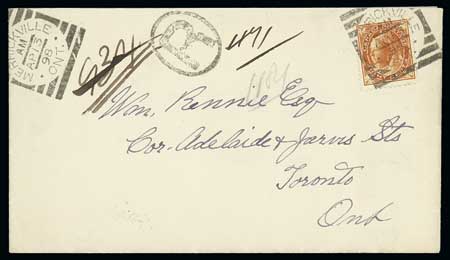 MERRICKVILLE
AM
AP 13
98
ONT.
R
471
Wm. Rennie Esq
Cor. Adelaide & Jarvis Sts
Toronto
Ont